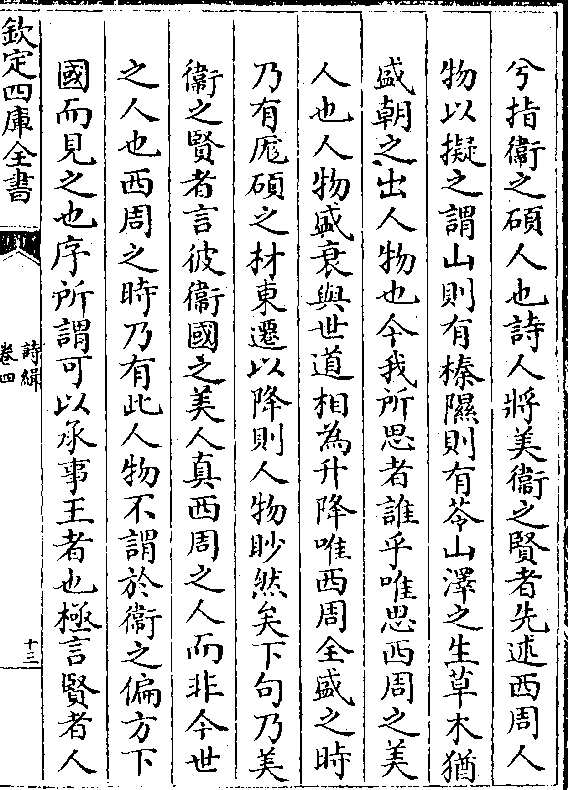 兮指衞之碩人也詩人將美衞之賢者先述西周人
物以擬之謂山則有榛隰則有苓山澤之生草木猶
盛朝之出人物也今我所思者誰乎唯思西周之美
人也人物盛衰與世道相為升降唯西周全盛之時
乃有厖碩之材東遷以降則人物眇然矣下句乃美
衞之賢者言彼衞國之美人真西周之人而非今世
之人也西周之時乃有此人物不謂於衞之偏方下
國而見之也序所謂可以承事王者也極言賢者人
欽定四庫全書
詩緝
卷四
十三